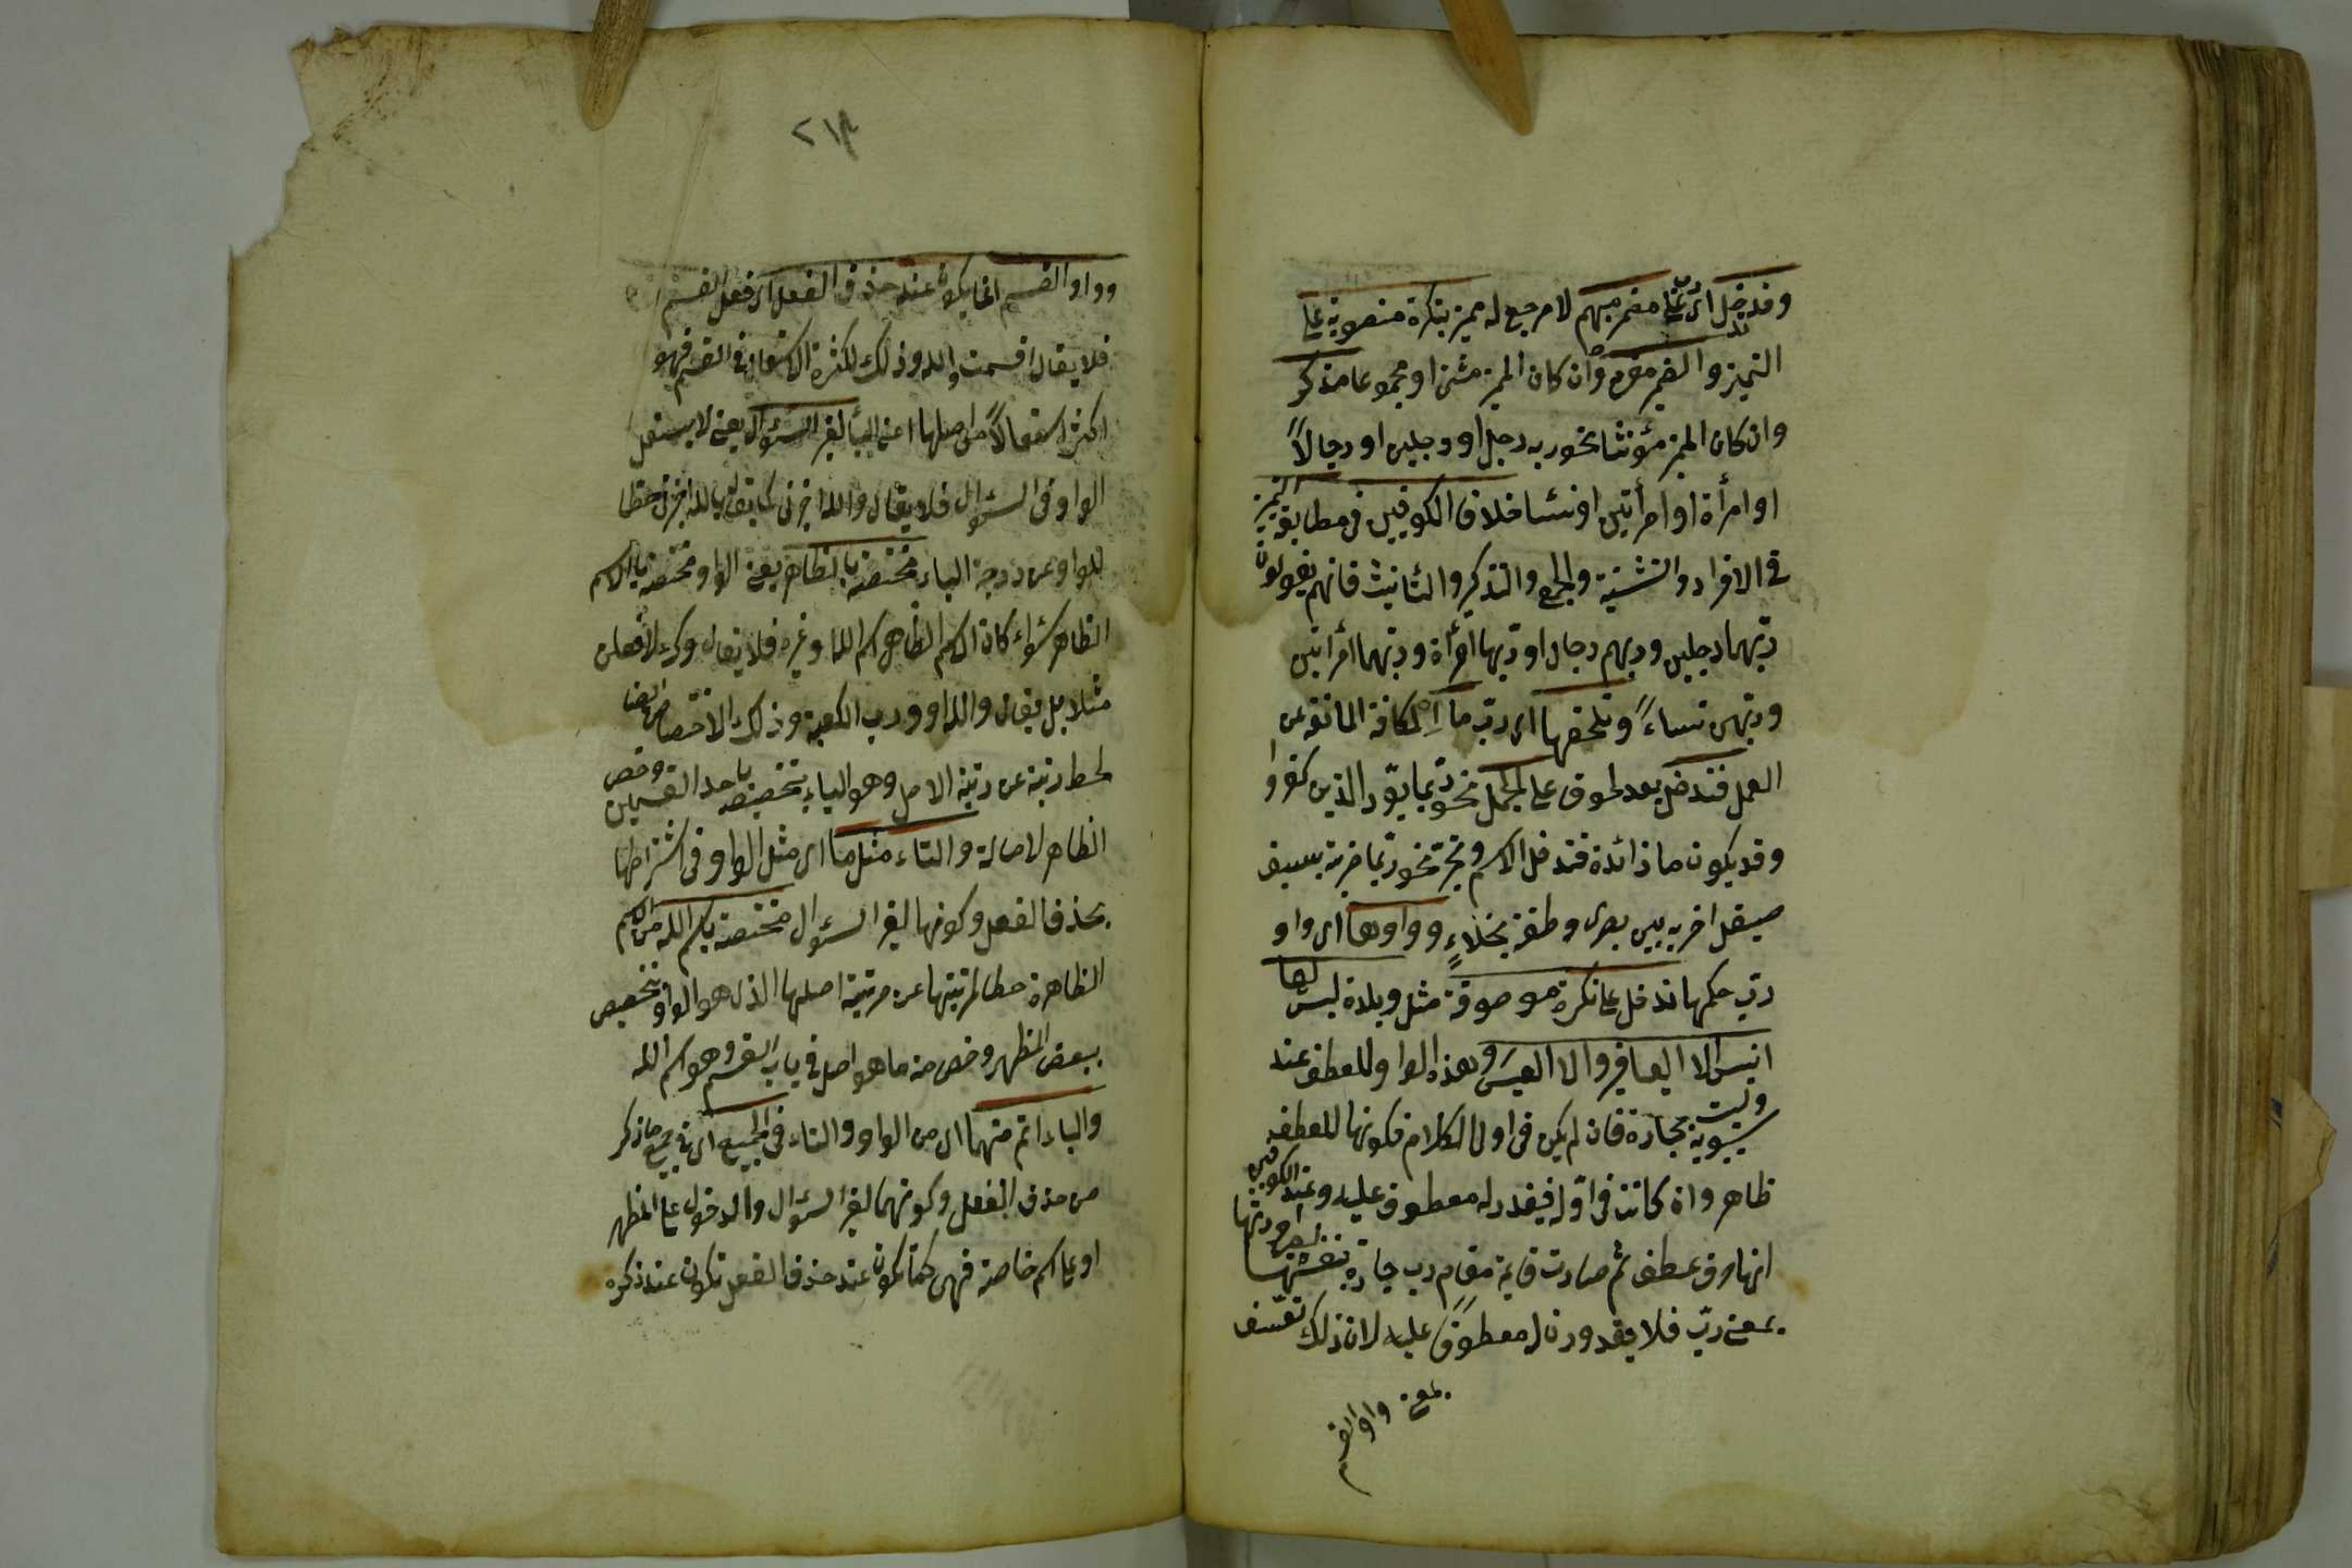 وقد تدخل اى رب على مضمر مبهم لا مرجع له مميز بنكرة منصوبة على
التميز والضمير مفرد وان كان المميز مثنى او مجموعا مذكر
وان كان المميز مؤنثا نحو ربه رجلا او رجلين او رجالاً
او امرأة او امرأتين او نساء خلافا للكوفيين فى مطابقة التميز
فى الافراد والتثنية والجمع والتذكير والتأنيث فانهم يقولون
ربهما رجلين وربهم رجال او ربها امرأة وربهما امرأتين
وربهن نساءً وتلحقها اى رب ما اى الكافة المانعة عن
العمل فتدخل بعد لحوق على الجمل نحو ربما يود الذين كفروا
وقد يكون ما زائدة فتدخل الاسم وتجر نحو ربما ضربة بسيف
صيقل اخربه بين بصرى وطعنة نجلاءٍ وواوها اى واو
رب حكمها تدخل على نكرة موصوفة مثل وبلدة ليس لها
انيس الا اليعافير والا العيس وهذه الواو للعطف عند
سيبويه وليت بجارة فان لم يكن فى اول الكلام فكونها للعطف
ظاهر وان كانت فى اوله فيقدر له معطوف عليه وعند الكوفيين
انها حرف عطف ثم صارت قائمة مقام رب جارة بنفسها لصيرورتها
بمعنى رب فلا يقدرون له معطوفا عليه لان ذلك تعسف
وواو القسم انما يكون عند حذف الفعل اى فعل القسم
فلا يقال اقسمت والله وذلك لكثرة الاستعمال فى القسم فهو
اكثر استعمالاً من اصلها اعنى الباء لغير السؤال يعنى لا يستعمل
الواو فى السؤال فلا يقال والله اخبرنى كما يقال بالله اخبرنى حطا
للواو عن درجة الباء مختصة بالظاهر يعنى الواو مختصة بالاسم
الظاهر سواء كان الاسم الظاهر اسم الله او غيره فلا يقال وك لافعلن
مثلا بل يقال والله او ورب الكعبة وذلك الاختصاص ايضا
لحط رتبة عن رتبة الاصل وهو الباء بتخصيصه باحد القسمين وخص
الظاهر لاصالة والتاء مثلها اى مثل الواو فى اشتراطها
بحذف الفعل وكونها لغير السؤال مختصة باسم الله من الاسم
الظاهرة حطا لمرتبتها عن مرتبة اصلها الذى هو الواو بتخصيص
ببعض المظهر وخص منه ما هو اصل فى باب القسم وهو اسم الله
والباء اعم منهما اى من الواو والتاء فى الجميع اى فى جميع ما ذكر
من حذف الفعل وكونهما لغير السؤال والدخول على المظهر
او على اسم خاصة فهى كما تكون عند حذف الفعل تكون عند ذكره